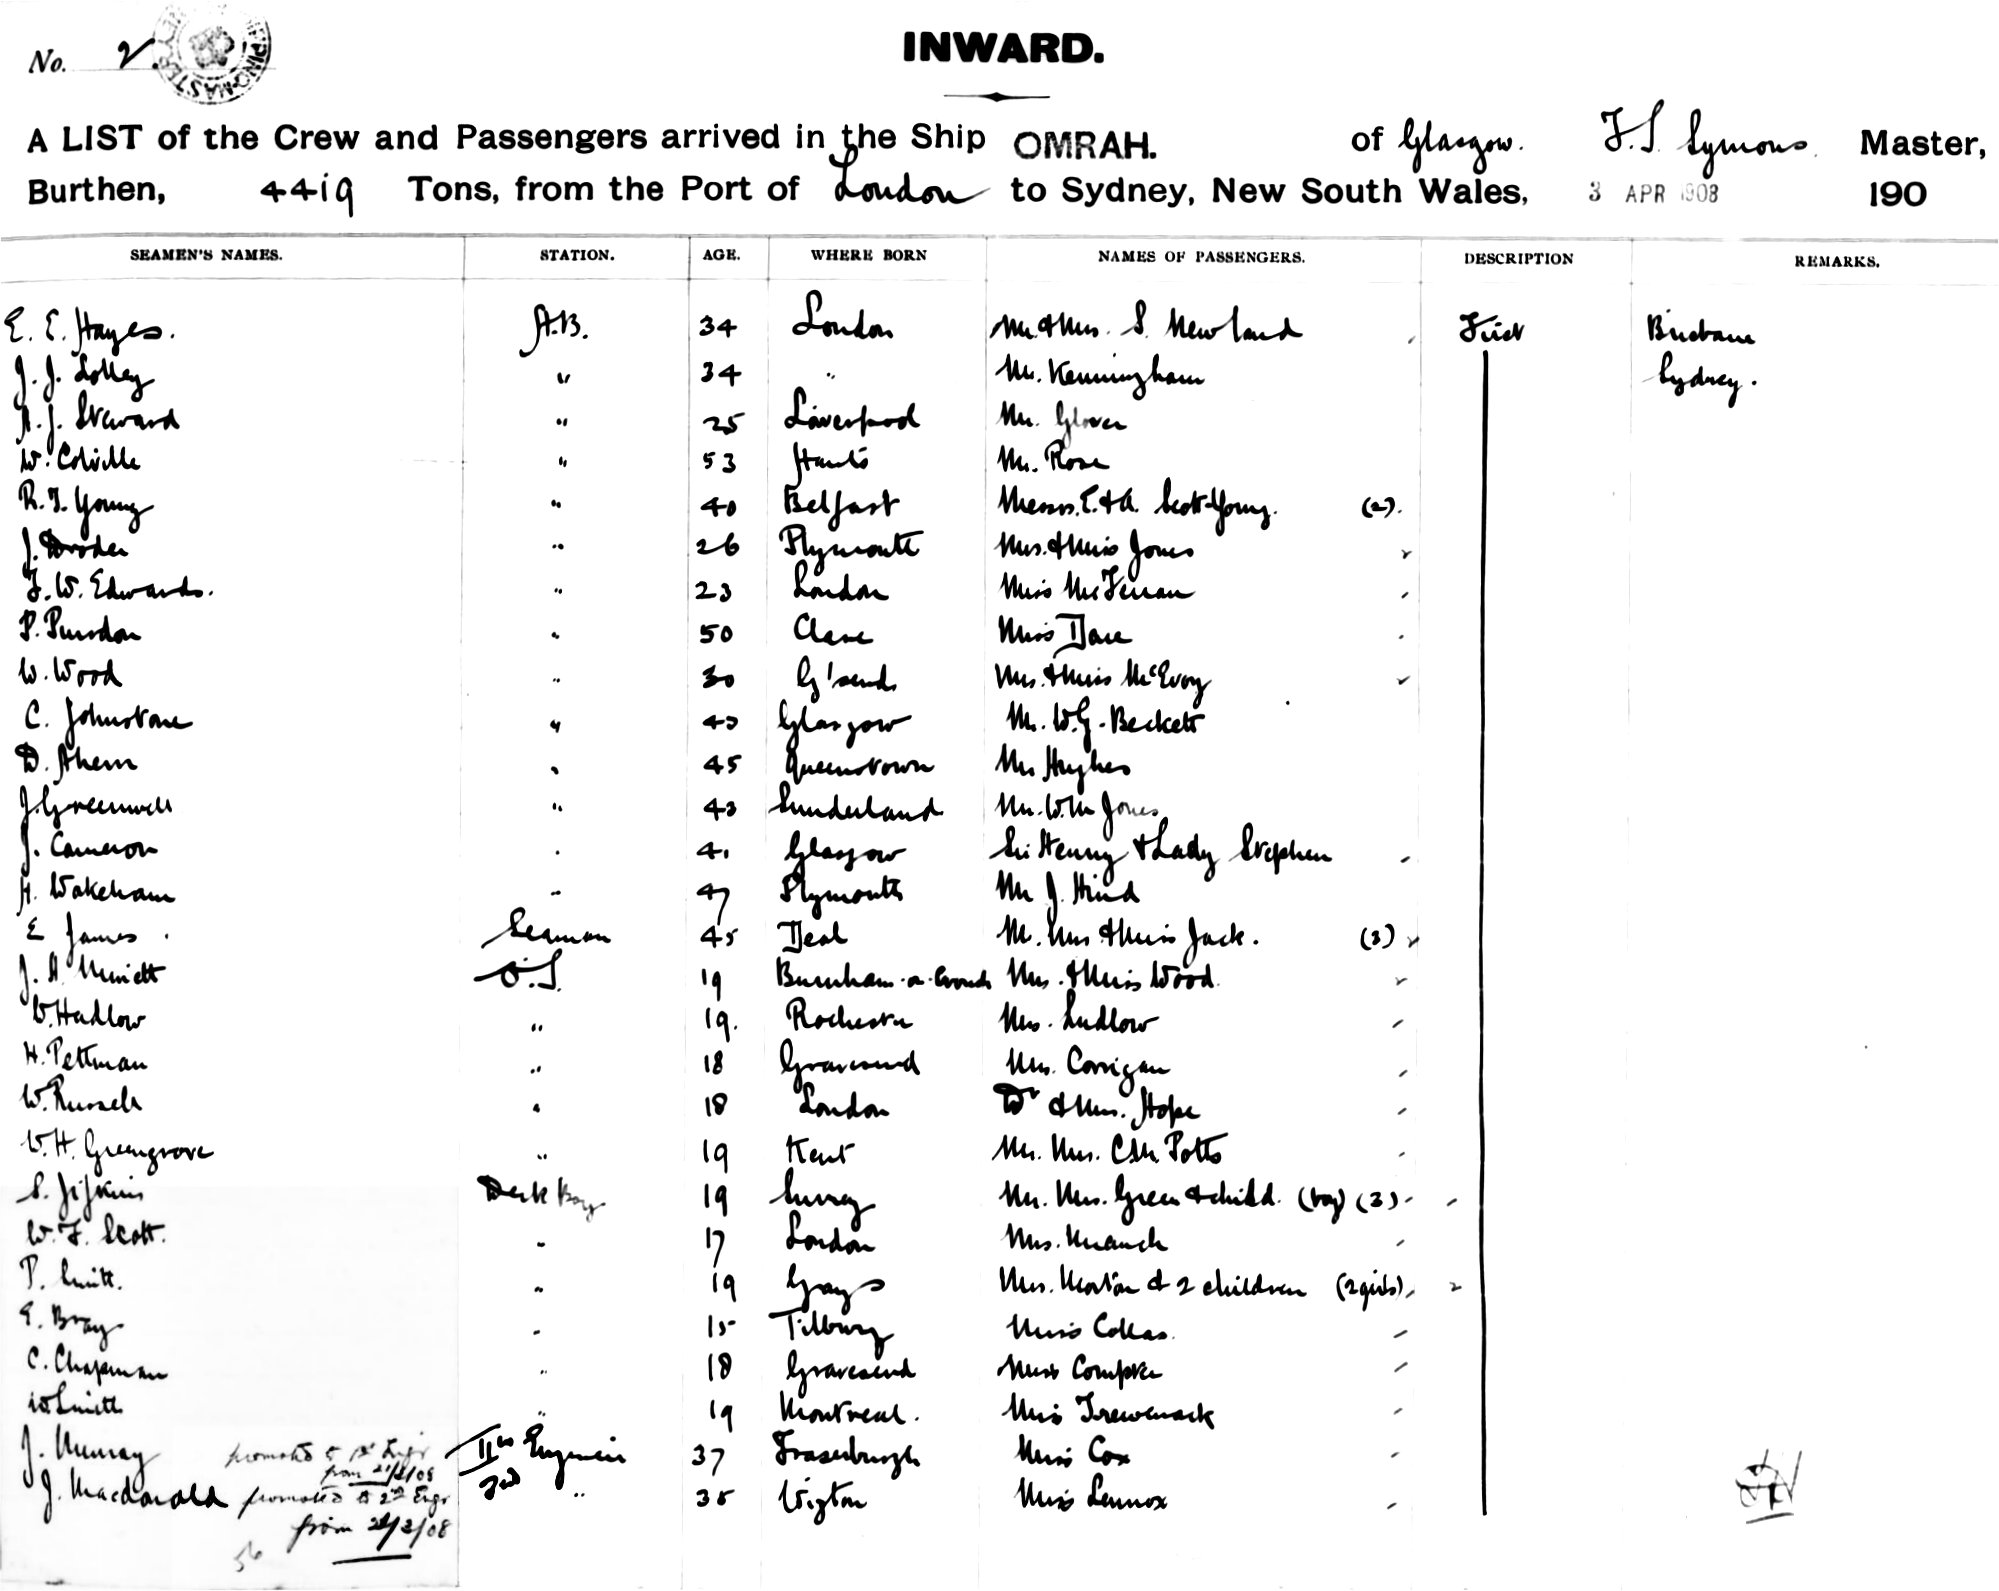 No. 2.
INWARD.
A LIST of the Crew and Passengers arrived in the Ship OMRAH. of Glasgow. F. S. Symons. Master,
Burthen, 4419 Tons, from the Port of London to Sydney, New South Wales, 3 APR 1908 190
SEAMEN'S NAMES. STATION. AGE. WHERE BORN NAMES OF PASSENGERS. DESCRIPTION REMARKS.
E. E. Hayes. A.B. 34 London Mr. & Mrs. S. Newland First Brisbane
J. J. Lolley " 34 " Mr. Kenningham Sydney.
A. J. Steward " 25 Liverpool Mr. Glover
W. Colville " 53 Hants Mr. Rose
R. F. Young " 40 Belfast Messrs. E. & A. Scott-Young. (2).
J. " 26 Plymouth Mrs. & Miss Jones
F. W. Edwards. " 23 London Miss McFerran
P. Purdon " 50 Clare Miss Dare
W. Wood " 30 G'send Mrs. & Miss McEvoy
C. Johnstone " 43 Glasgow Mr. W. G. Beckett
D. Ahern " 45 Queenstown Mr Hughes
J. Greenwell " 43 Sunderland Mr. W. M Jones
J. Cameron " 41 Glasgow Sir Henry & Lady Stephen
H. Wakeham " 47 Plymouth Mr J. Hind
E James. Seaman 45 Deal Mr. Mrs & Miss Jack. (3)
J. A. O.S. 19 Burnham-on-Crouch Mrs. & Miss Wood
W. Hadlow " 19. Rochester Mrs. Ludlow
H. Pettman " 18 Gravesend Mrs. Corrigan
W. Russell " 18 London Dr & Mrs. Hope
W. H. Greengrove " 19 Kent Mr. Mrs. C. M. Potts
S. Jifkins Deck Boy 19 Surrey Mr. Mrs. Green & child. (boy) (3)
W. F. Scott. " 17 London Mrs.
P. Smith. " 19 Grays Mrs. Morton & 2 children (2 girls)
E. Bray " 15 Tilbury Miss Collas
C. Chapman " 18 Gravesend Miss
W. Smith " 19 Montreal. Miss Trewenack
J. Murray promoted to 1st Engr IInd Engineer 37 Fraserburgh Miss Cox
from 21/2/08
J. Macdonald promoted to 2nd Engr 3rd " 35 Wigton Miss Lennox
from 21/2/08
56